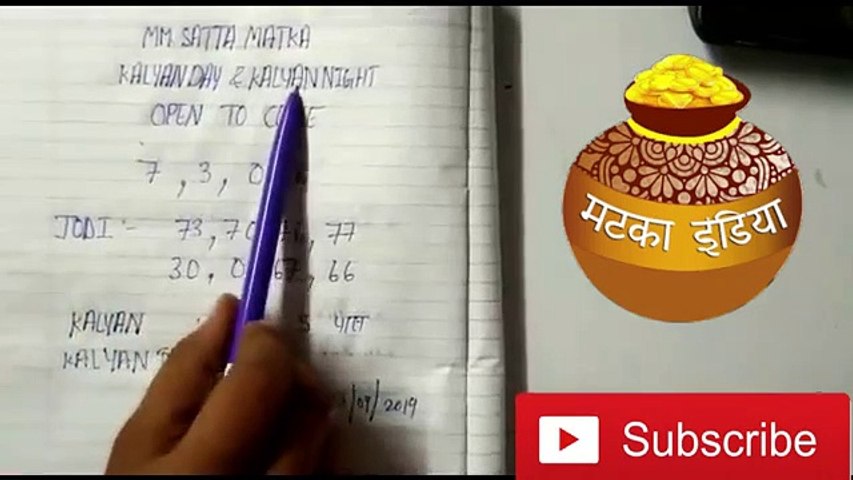 MM. SATTA MATKA
KALYAN DAY & KALYAN NIGHT
OPEN TO
7 , 3 , 0
JODI :- 73 , 70 , 77
30 , 67 , 66
KALYAN
KALYAN
/2019
मटका इंडिया
Subscribe